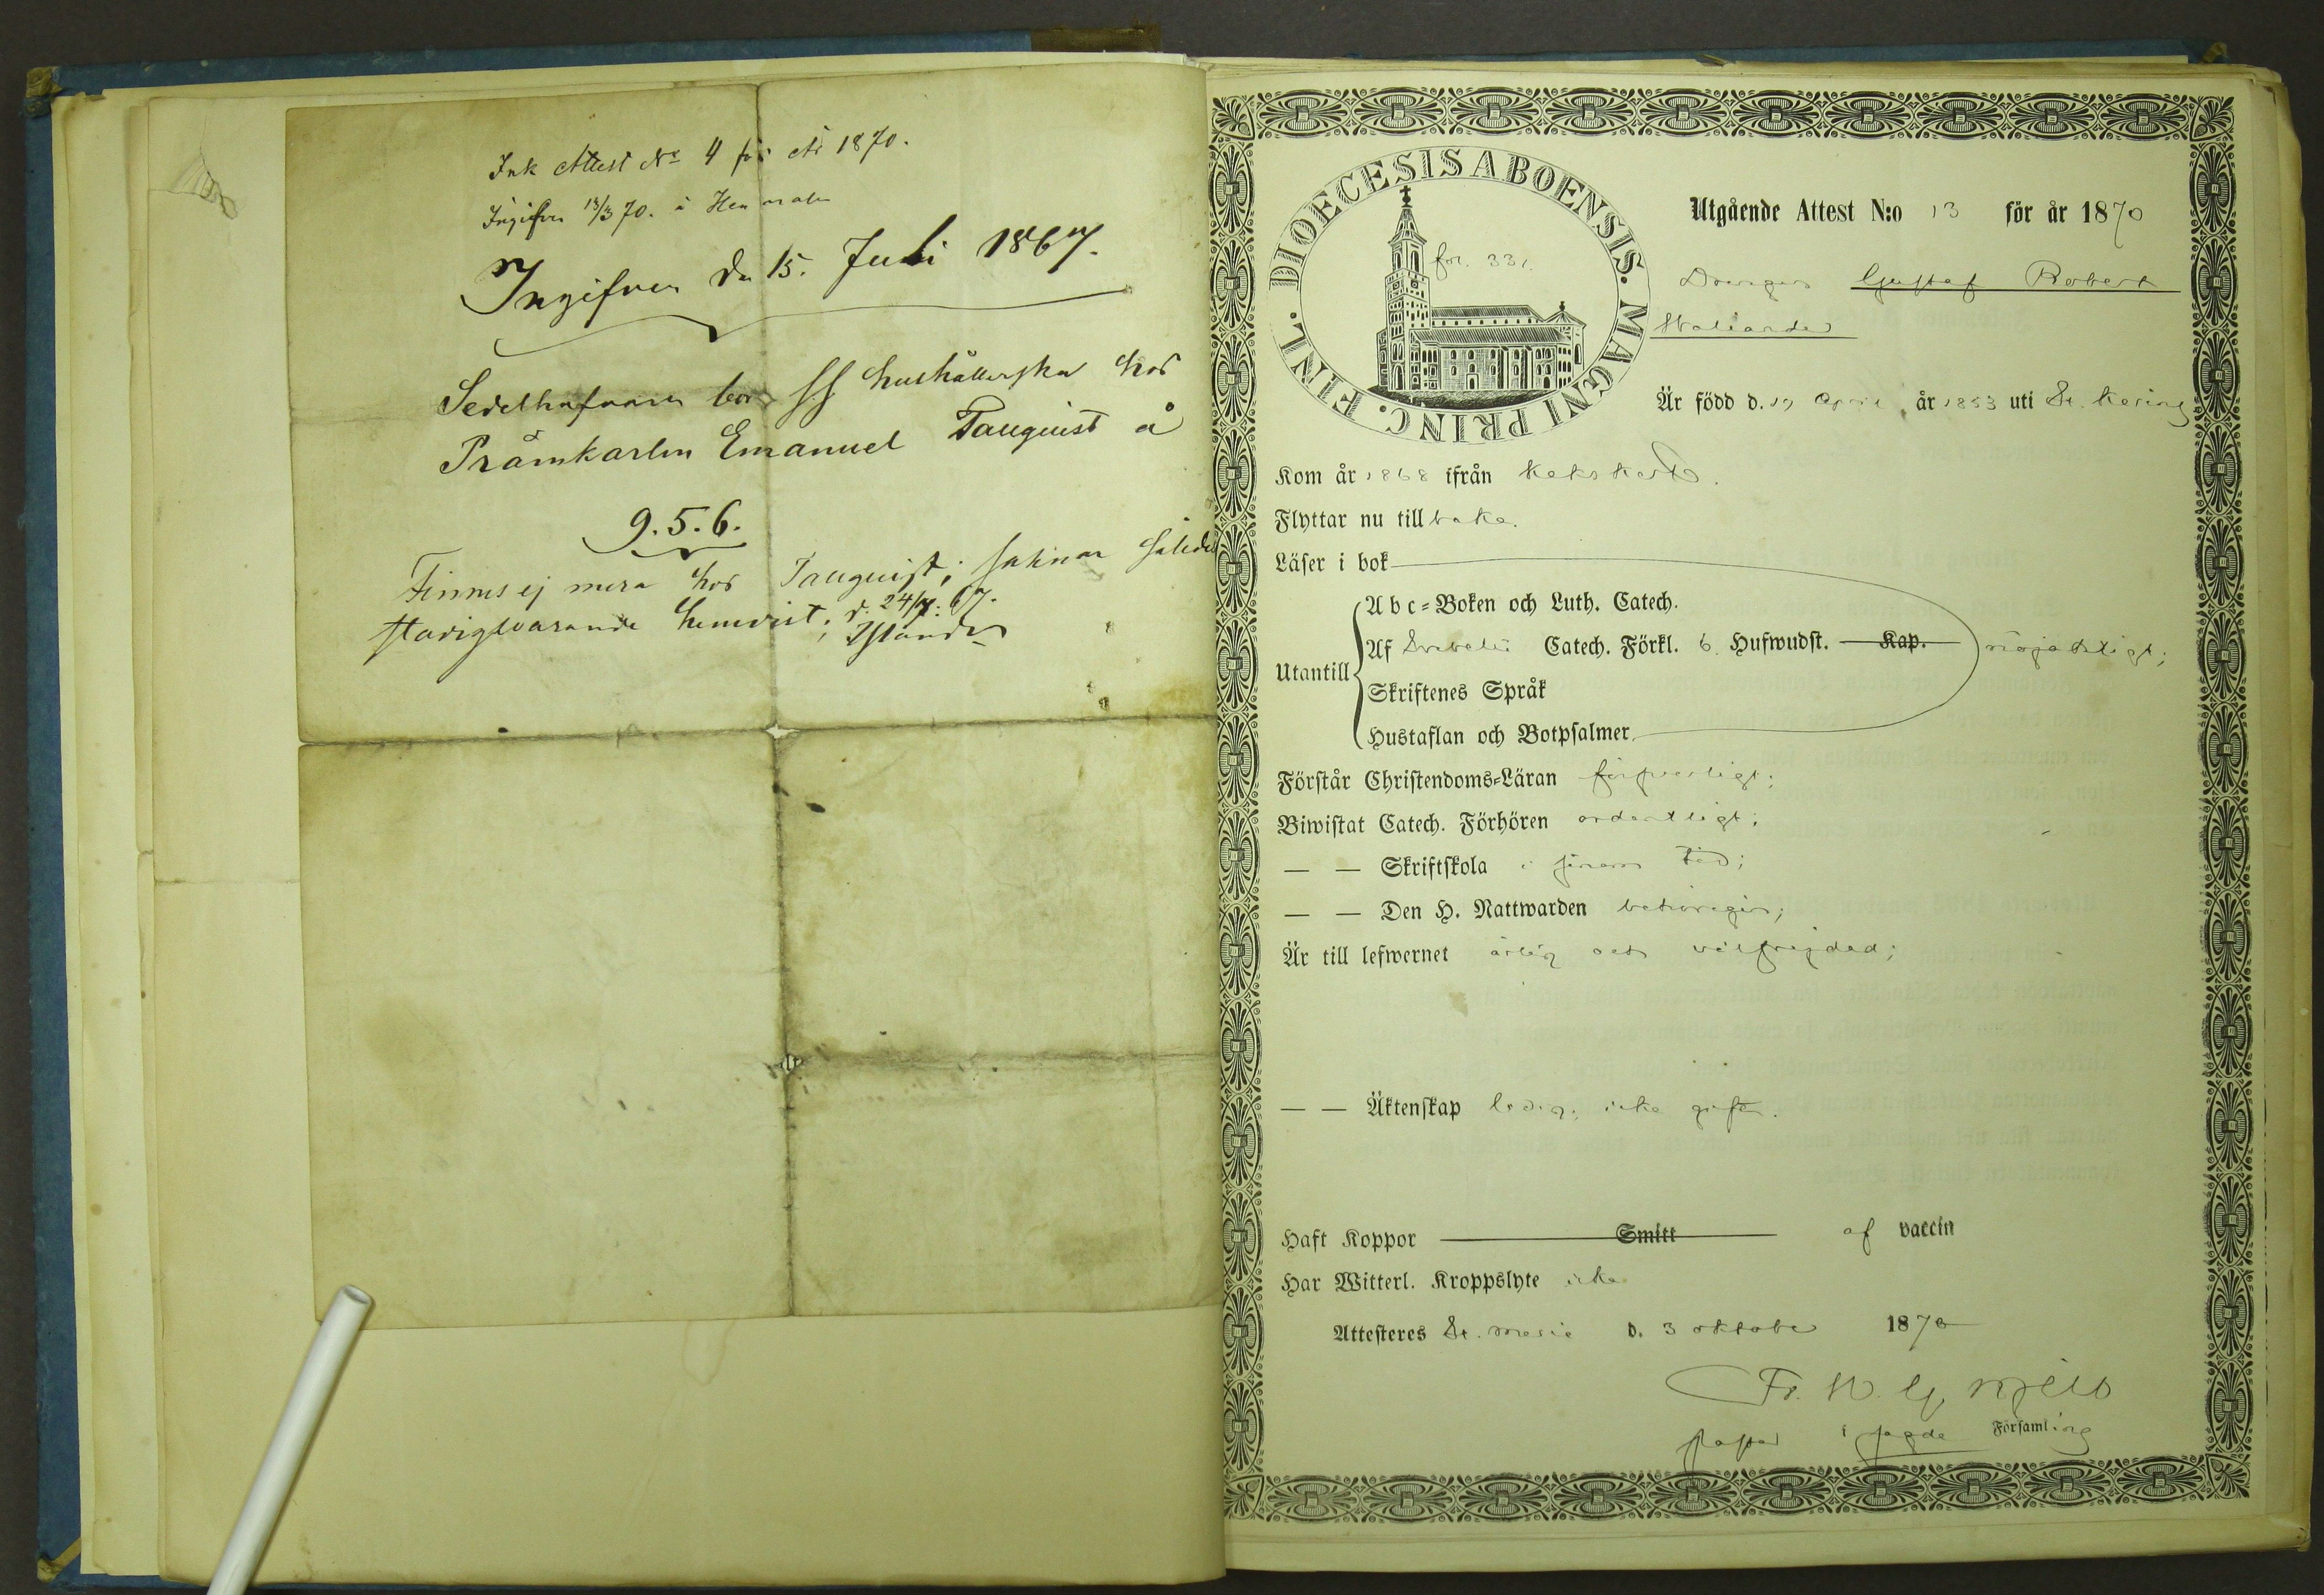 Ink Attest No 4 för År 1870.
Ingifven 13/3 70. å
Ingifven d. 15. Juli 1867.
Sedelhafvaren bor ss hushållerska hos
Pråmkarlen Emanuel Tauquist å
9. 5. 6.
Finnes ej mera hos Tauquist; saknar således
stadigvarande hemvist; d. 24/7. 67.
DIOECESIS ABOENSIS. MAGNI PRINC. FINL.
fol. 331.
Utgående Attest N:o 13 för år 1870
Drengen Gustaf Robert
Är född d. 19 April år 1853 uti St. Karins
Kom år 1868 ifrån Kakskerta.
Flyttar nu tillbaka.
Läser i bok
Utantill
Abc-Boken och Luth. Catech.
Af Svebelii Catech. Förkl. 6 Hufwudst. Kap. nöjaktligt;
Skriftenes Språk
Hustaflan och Botpsalmer
Förstår Christendoms-Läran försvarligt;
Biwistat Catech. Förhören ordentligt;
— — Skriftskola i sinom tid;
— — Den H. Nattwarden behörigen;
Är till lefwernet ärlig och välfrejdad;
— — Äktenskap ledig; icke gift.
Haft Koppor Smitt af vaccin
Har Witterl. Kroppslyte icke
Attesteres St. Marie d. 3 oktober 1870
Fr. W. G. Hjelt
pastor i sagde Församling